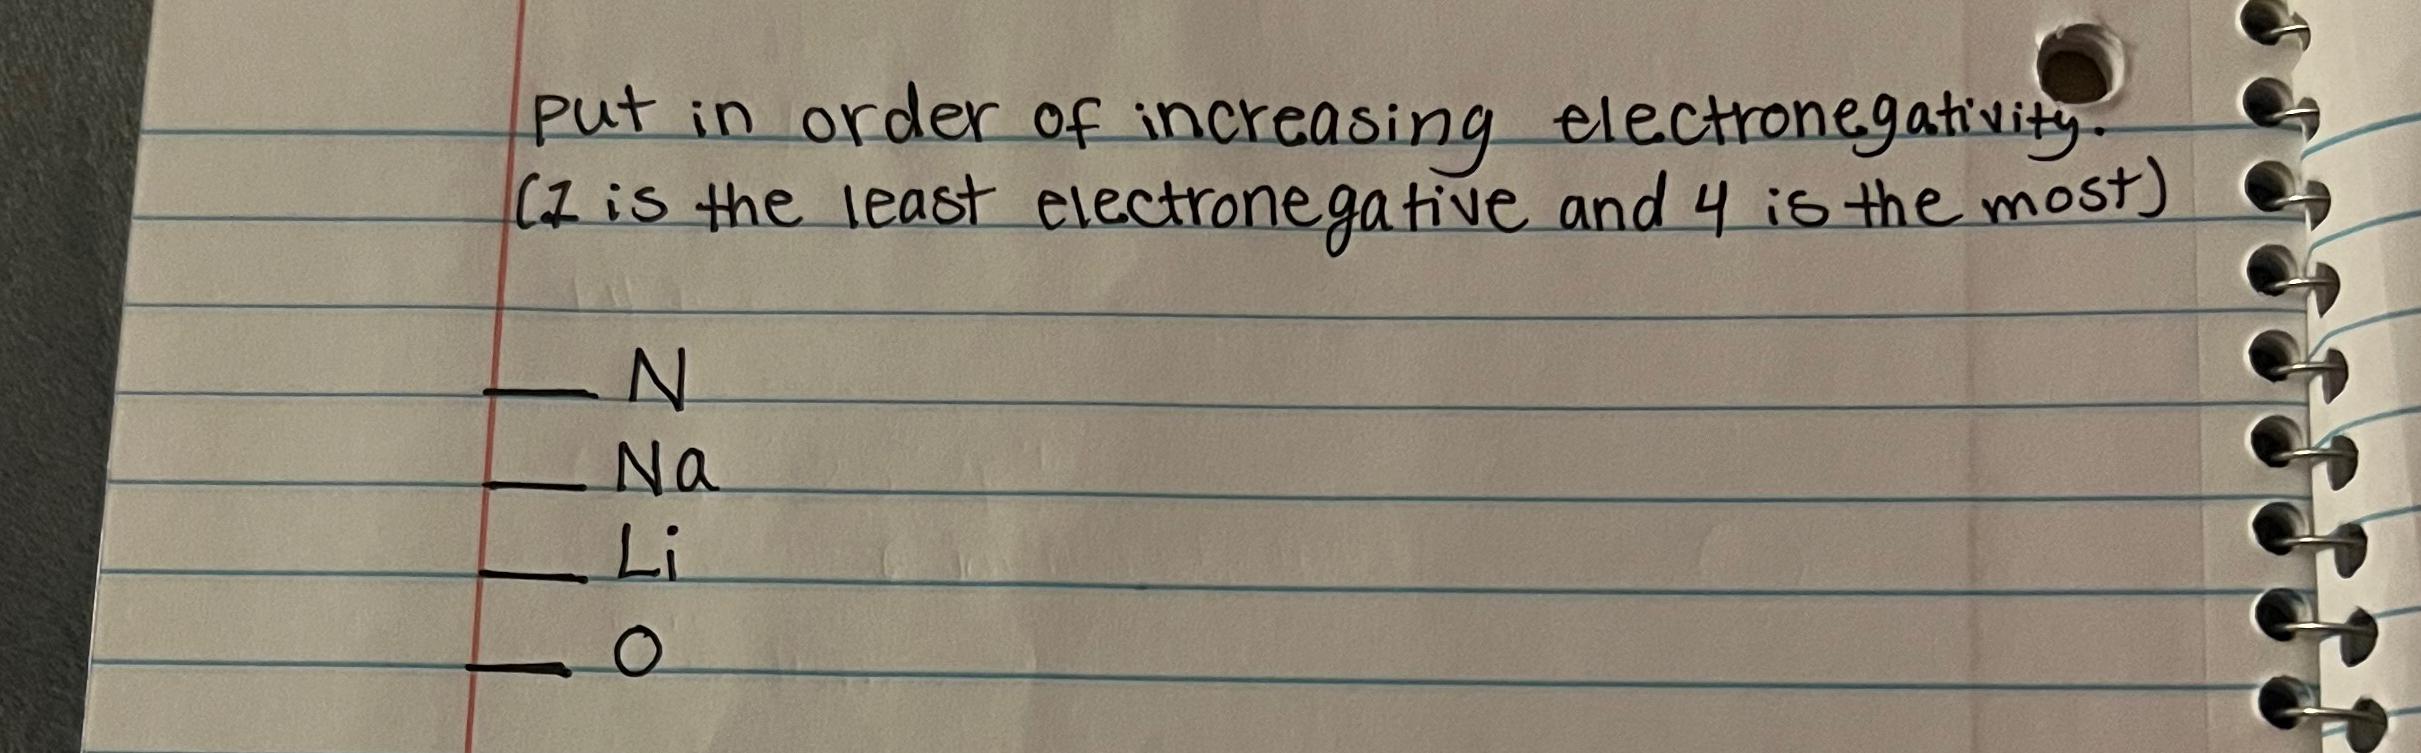 put in order of increasing electronegativity.
(1 is the least electronegative and 4 is the most)
__ N
__ Na
__ Li
__ O